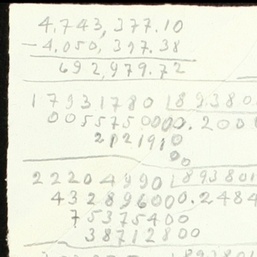 4,743,377.10
- 4,050,397.38
692,979.72
17931780 | 89380
0055750000.200
2121910
00
22204990 | 893801
432896000.2484
75375400
38712800